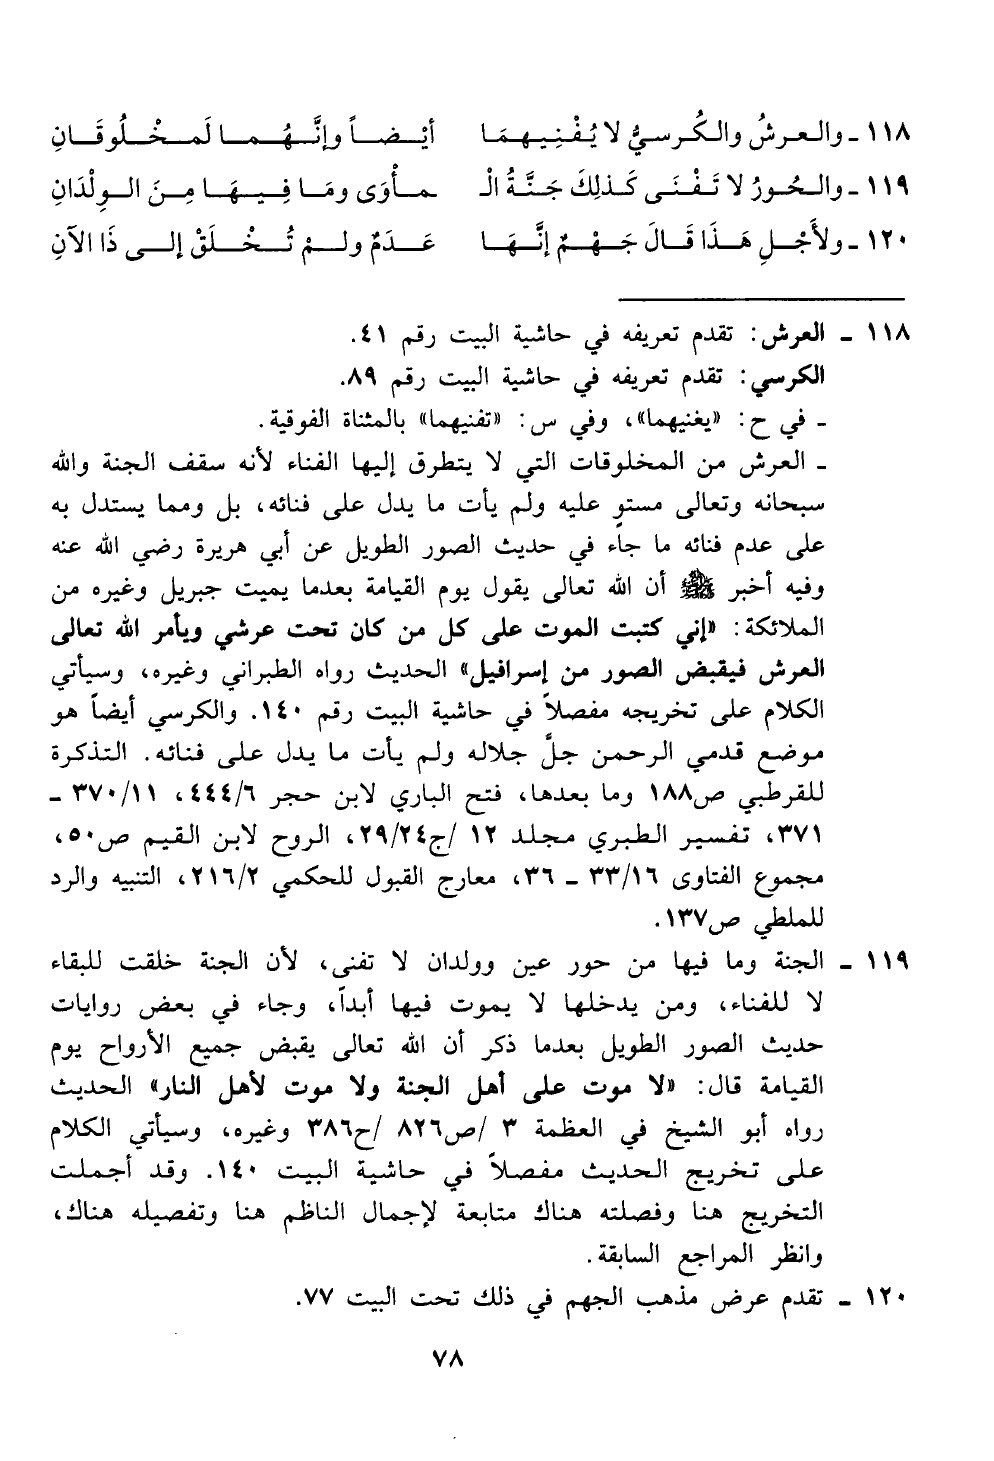 ١١٨ ـ والـعرشُ والـكُرسيُّ لا يُفْنِيهِمَا أيْـضـاً وإنَّـهُـمـا لَمَـخْـلُوقَـانِ
١١٩ ـ والـحُورُ لا تَـفْـنَـى كَـذلِكَ جَنَّةُ الْـ ـمأْوَى ومَـا فِـيـهَـا مِـنَ الـوِلْدَانِ
١٢٠ ـ ولأَجْـلِ هَـذَا قَـالَ جَـهْـمٌ إنَّـهَـا عَـدَمٌ ولـمْ تُـخْـلَقْ إلـى ذَا الآنِ
١١٨ ـ العرش: تقدم تعريفه في حاشية البيت رقم ٤١.
الكرسي: تقدم تعريفه في حاشية البيت رقم ٨٩.
ـ في ح: «يغنيهما»، وفي س: «تفنيهما» بالمثناة الفوقية.
ـ العرش من المخلوقات التي لا يتطرق إليها الفناء لأنه سقف الجنة والله
سبحانه وتعالى مستوٍ عليه ولم يأت ما يدل على فنائه، بل ومما يستدل به
على عدم فنائه ما جاء في حديث الصور الطويل عن أبي هريرة رضي الله عنه
وفيه أخبر ﷺ أن الله تعالى يقول يوم القيامة بعدما يميت جبريل وغيره من
الملائكة: «إني كتبت الموت على كل من كان تحت عرشي ويأمر الله تعالى
العرش فيقبض الصور من إسرافيل» الحديث رواه الطبراني وغيره، وسيأتي
الكلام على تخريجه مفصلاً في حاشية البيت رقم ١٤٠. والكرسي أيضاً هو
موضع قدمي الرحمن جلَّ جلاله ولم يأت ما يدل على فنائه. التذكرة
للقرطبي ص١٨٨ وما بعدها، فتح الباري لابن حجر ٤٤٤/٦، ٣٧٠/١١ ـ
٣٧١، تفسير الطبري مجلد ١٢ /ج٢٩/٢٤، الروح لابن القيم ص٥٠،
مجموع الفتاوى ٣٣/١٦ ـ ٣٦، معارج القبول للحكمي ٢١٦/٢، التنبيه والرد
للملطي ص١٣٧.
١١٩ ـ الجنة وما فيها من حور عين وولدان لا تفنى، لأن الجنة خلقت للبقاء
لا للفناء، ومن يدخلها لا يموت فيها أبداً، وجاء في بعض روايات
حديث الصور الطويل بعدما ذكر أن الله تعالى يقبض جميع الأرواح يوم
القيامة قال: «لا موت على أهل الجنة ولا موت لأهل النار» الحديث
رواه أبو الشيخ في العظمة ٣ /ص٨٢٦ /ح٣٨٦ وغيره، وسيأتي الكلام
على تخريج الحديث مفصلاً في حاشية البيت ١٤٠. وقد أجملت
التخريج هنا وفصلته هناك متابعة لإجمال الناظم هنا وتفصيله هناك،
وانظر المراجع السابقة.
١٢٠ ـ تقدم عرض مذهب الجهم في ذلك تحت البيت ٧٧.
٧٨